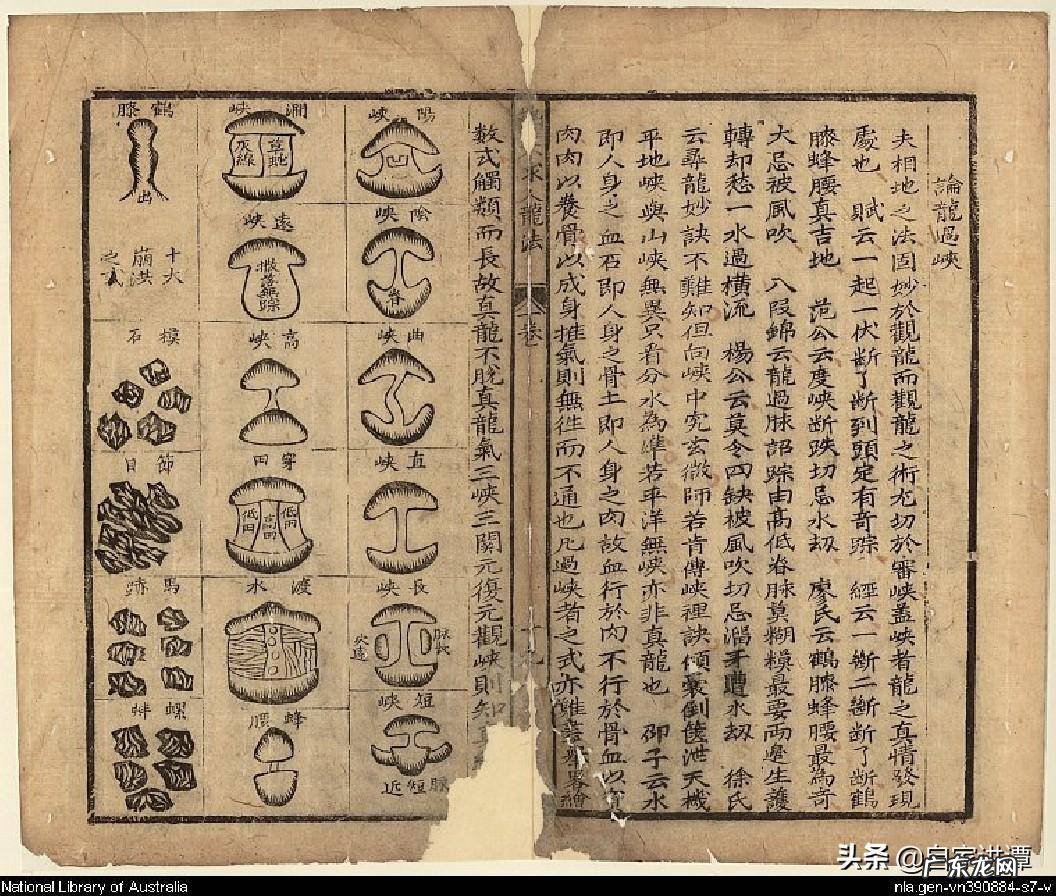 論龍過峽
夫相地之法固妙於觀龍而觀龍之術尤切於審峽盖峽者龍之真情發現
處也　賦云一起一伏断了断到頭定有奇踪　經云一断二断断了断鶴
膝蜂腰真吉地　范公云度峽断跌切忌水刼　廖氏云鶴膝蜂腰最為奇
大忌被風吹　八段錦云龍過脉認踪由高低脊脉莫糊糢最要両邊生護
轉却愁一水過橫流　楊公云莫令凹缺被風吹切忌溜牙遭水刼　徐氏
云尋龍妙訣不難知但向峽中究玄微師若肯傳峽裡訣傾囊倒篋泄天機
平地峽與山峽無異只看分水為準若平洋無峽亦非真龍也　邵子云水
即人身之血石即人身之骨土即人身之肉故血行於肉不行於骨血以
肉肉以養骨以成身推氣則無徃而不通也凡過峽者之式亦難
繪
龍法
卷
數式觸類而長故真龍不脫真龍氣三峽三關元復元觀峽則知
陽峽
凹
陰峽
脊
曲峽
直峽
長峽
脉長
短峽
脉短近
澗峽
草蛇
灰線
遠峽
散落無踪
高峽
穿田
低田
高田
低田
渡水
蜂腰
鶴膝
出
十大崩洪之式
石
節目
馬跡
螺蚌
National Library of Australia
nla.gen-vn390884-s7-v
头条
广东龙网